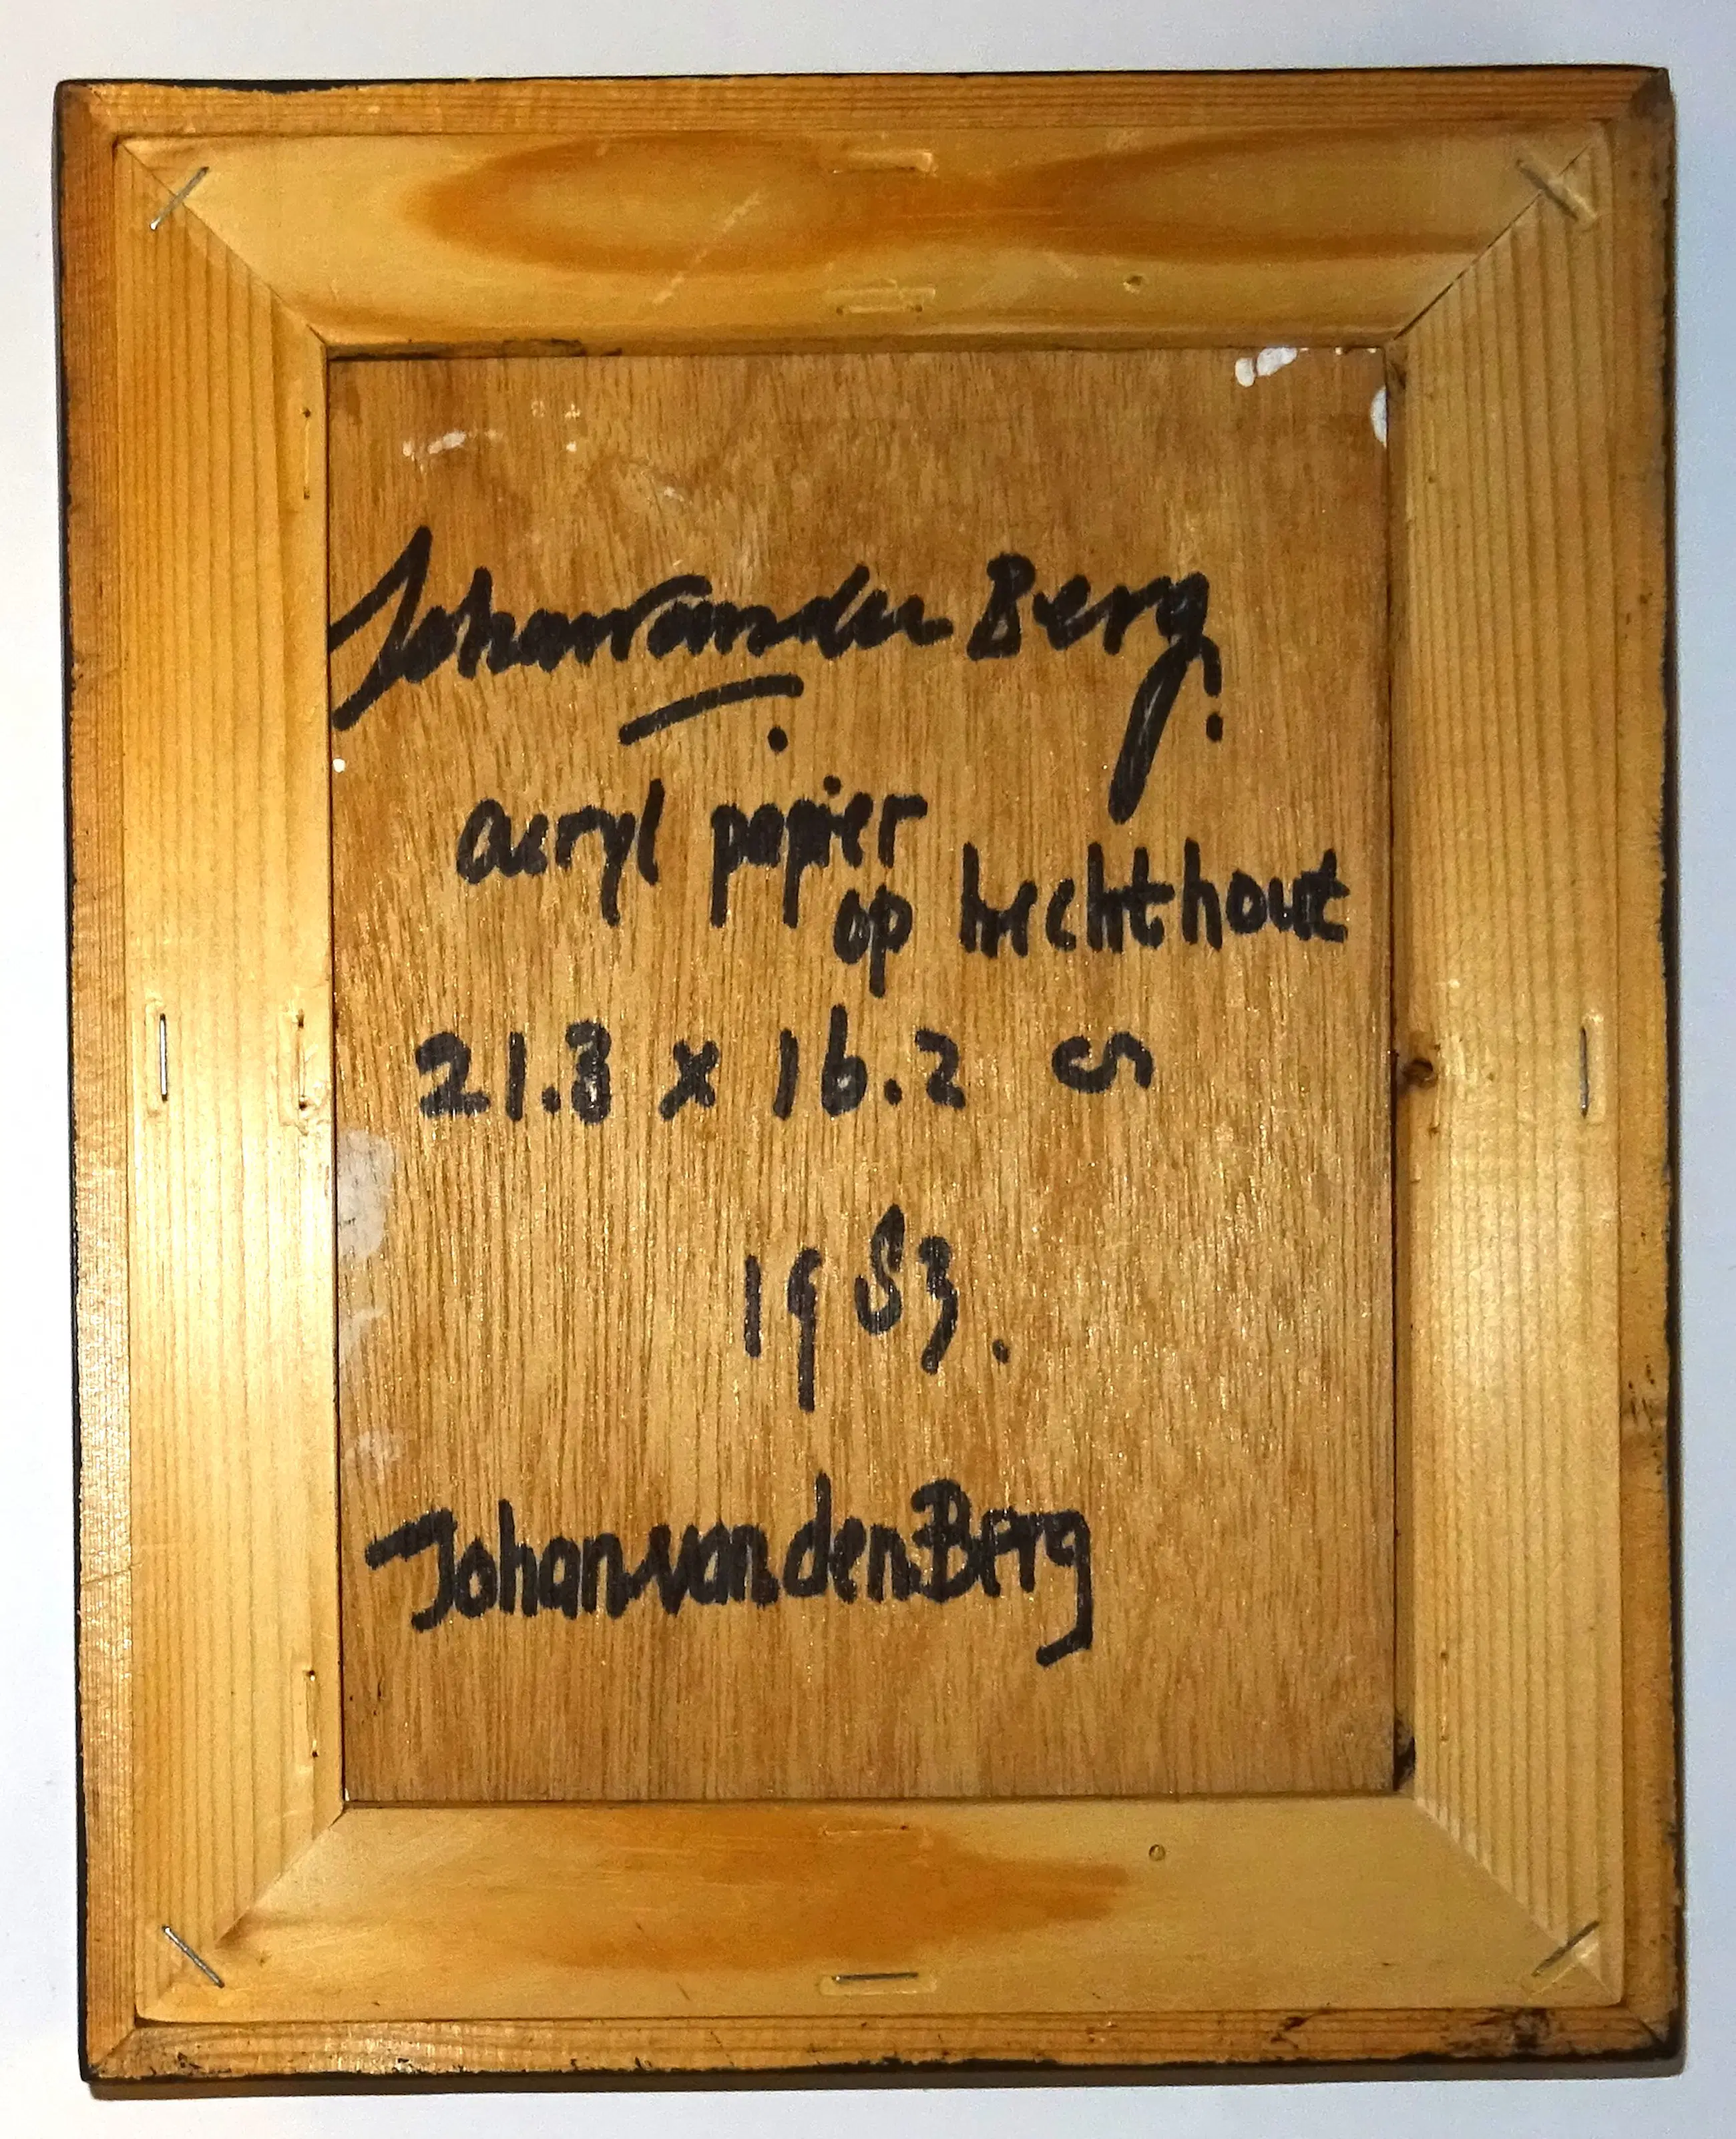 Johan van den Berg.
acryl papier
op hechthout
21.3 x 16.2 cm
1983.
Johan van den Berg